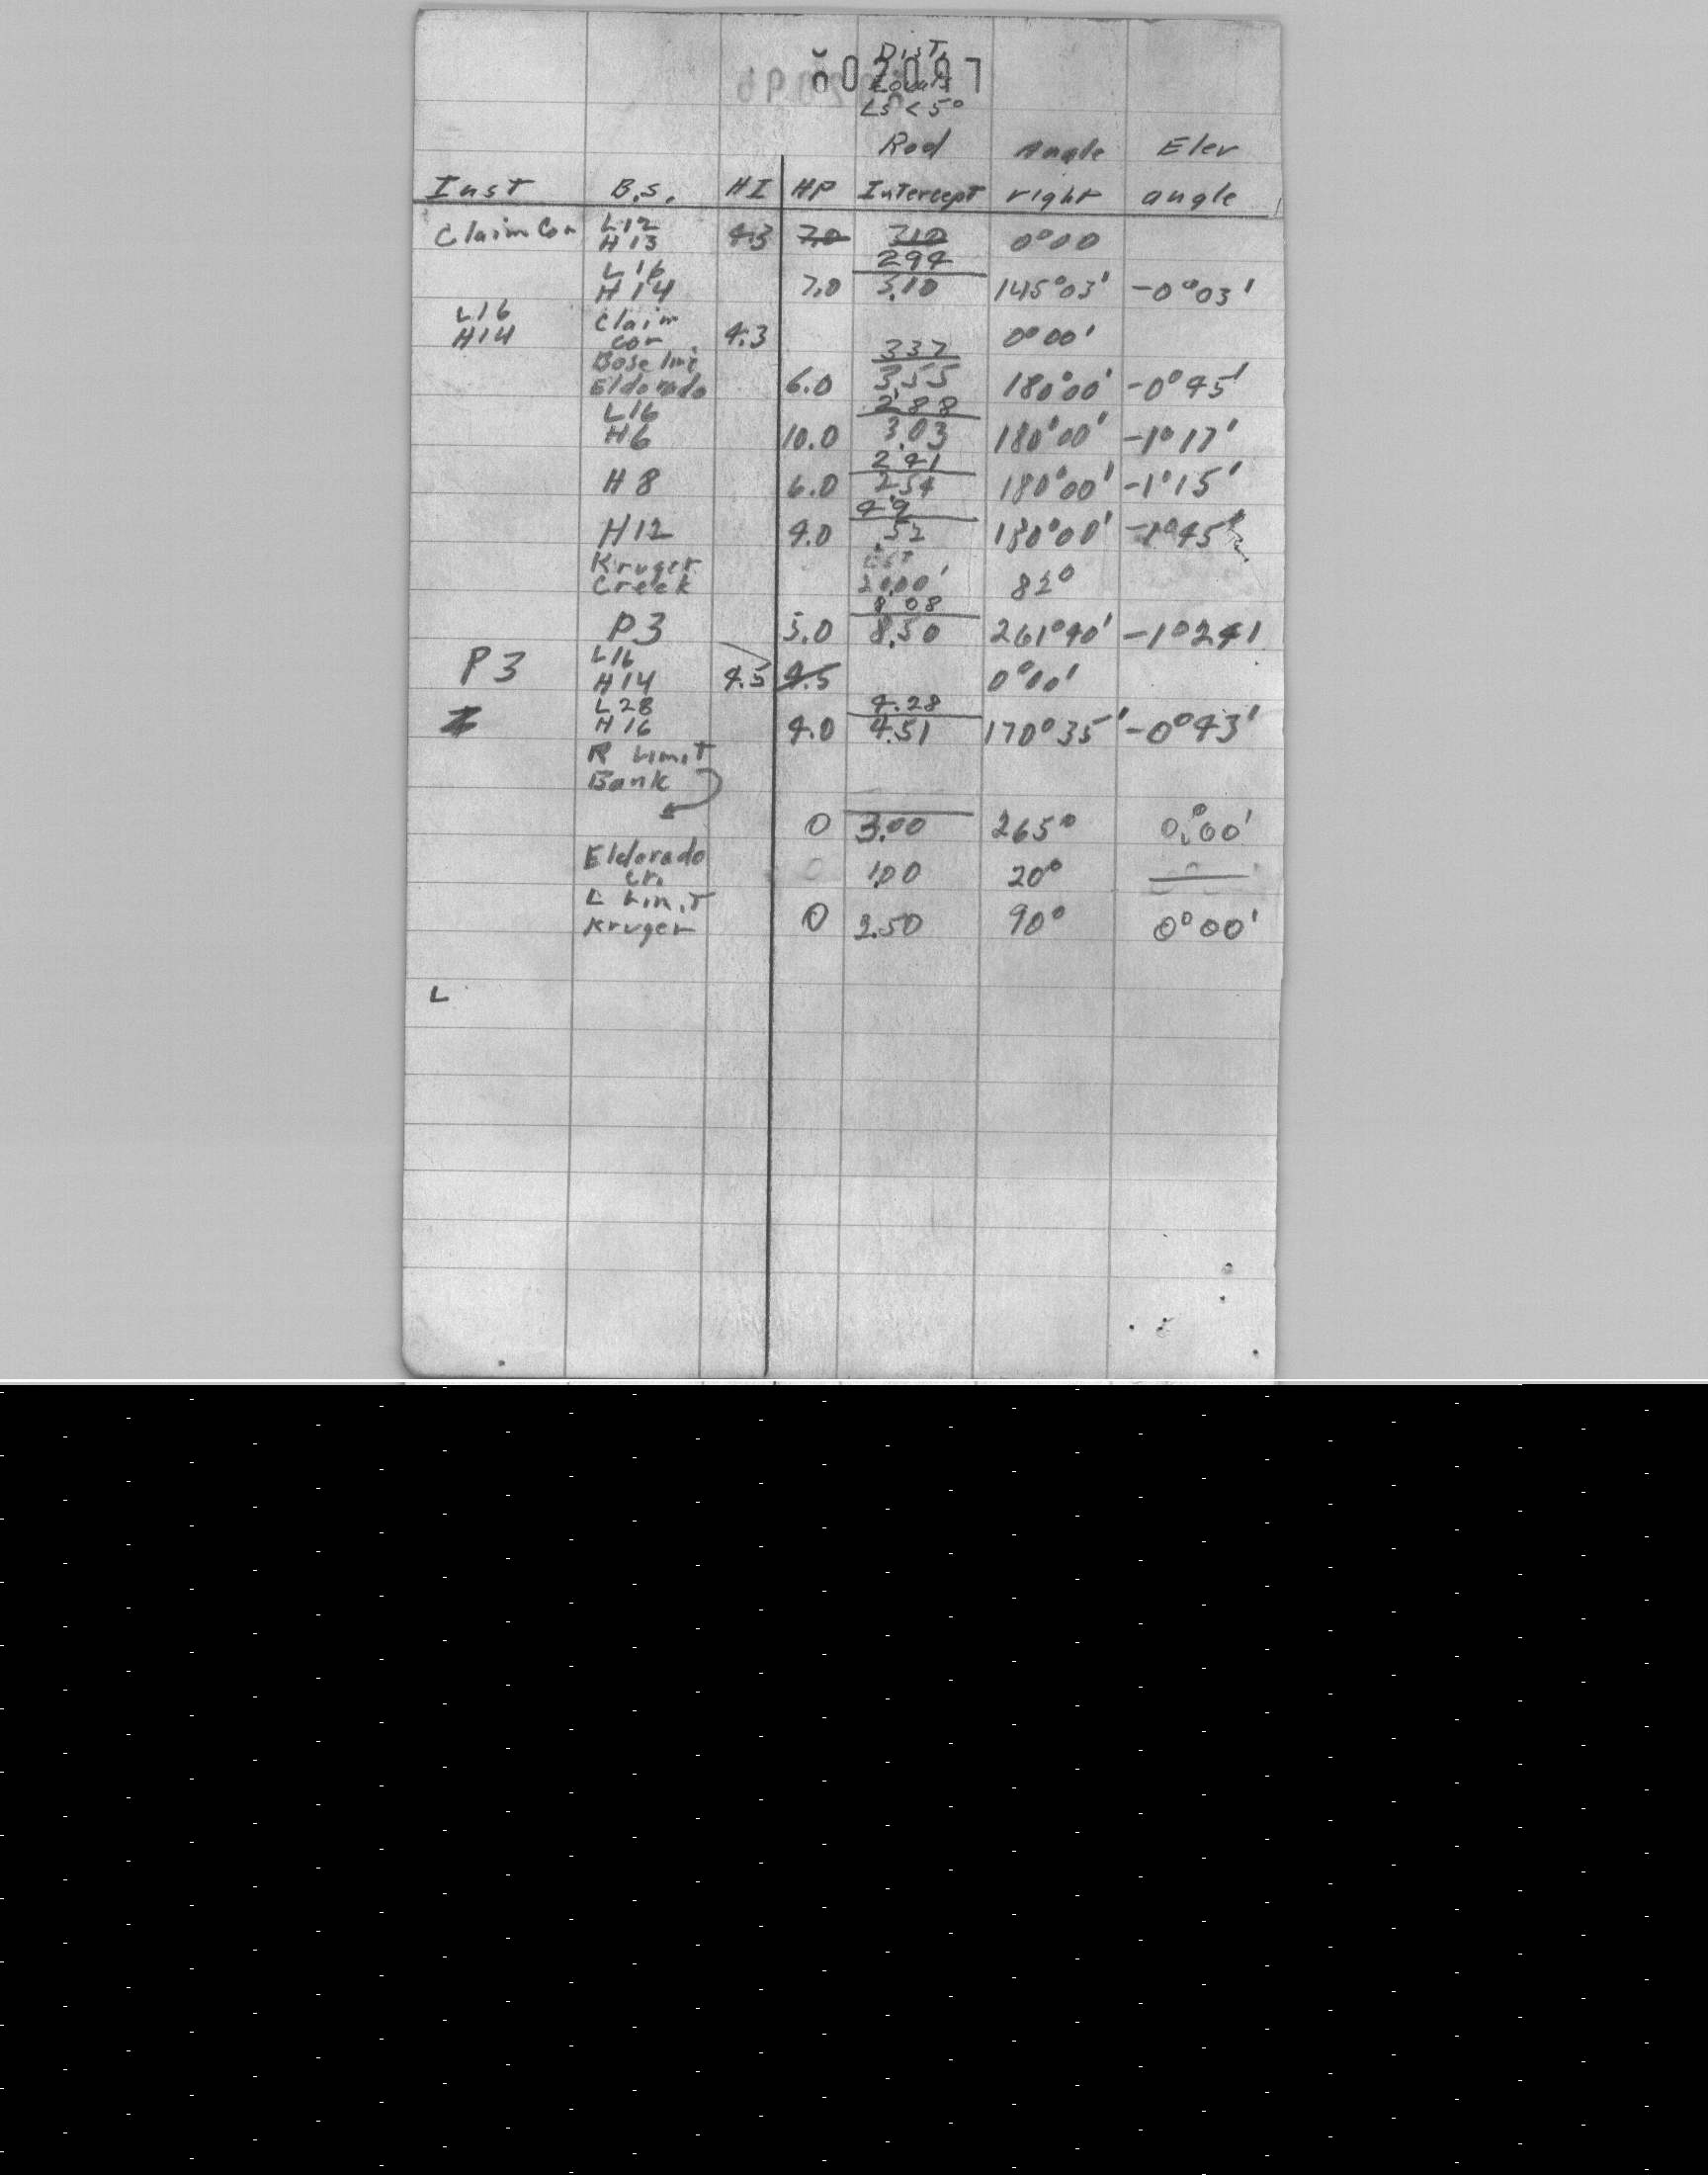 002097
Dist.
Equals
Ls < 5°
Rod Angle Elev
Inst B.S. HI HP Intercept right angle
Claim Cor L12 H13 4.3 7.0 310 0°00
294
L16
H14 7.0 3.10 145°03' -0°03'
L16 H14 Claim cor 4.3 0°00'
337
Base line
Eldorado 6.0 3.55 180°00' -0°45'
288
L16
H6 10.0 3.03 180°00' -1°17'
241
H8 6.0 2.54 180°00' -1°15'
49
H12 4.0 .52 180°00' -1°45'
Kruger Est
Creek 2000' 82°
8.08
P3 5.0 8.50 261°40' -1°24'
P3 L16 H14 4.5 4.5 0°00'
L28 4.28
H16 4.0 4.51 170°35' -0°43'
R Limit
Bank
0 3.00 265° 0°00'
Eldorado
cr. 0 1.00 20°
L Limit
Kruger 0 2.50 90° 0°00'
L